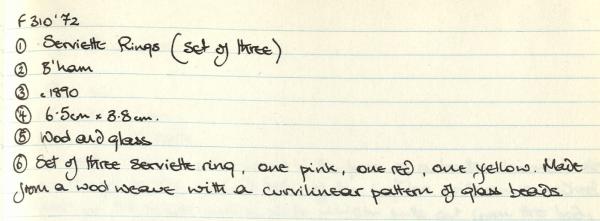 F 310'72
① Serviette Rings (Set of three)
② B'ham
③ c1890
④ 6.5cm x 3.8cm.
⑤ Wood and glass
⑥ Set of three serviette ring, one pink, one red, one yellow. Made
from a wood weave with a curvilinear pattern of glass beads.